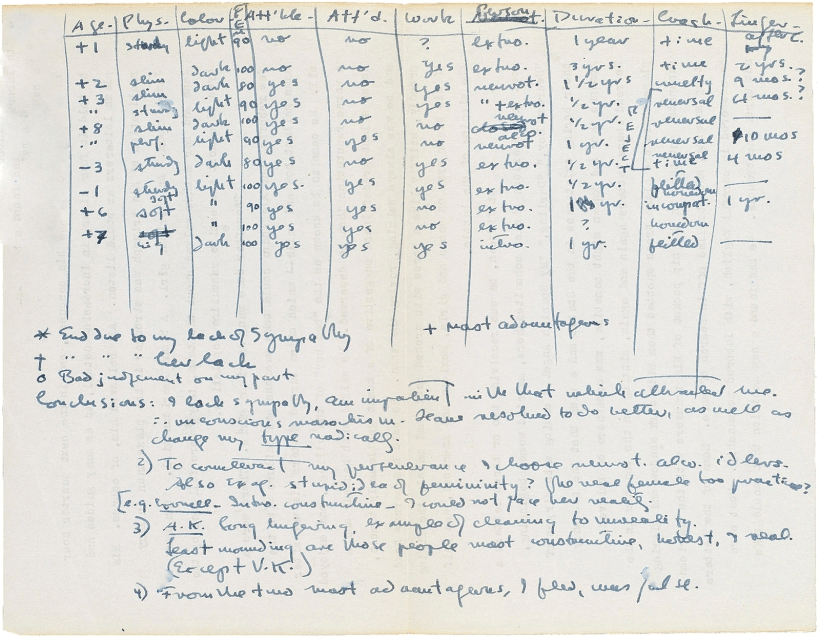 Age - Phys. Color FEE Att'ble - Att'd. Work Person Duration - Cough - Linger-
+1 light 90 no no ? extro. 1 year time
dark 100 no yes extro. 3 yrs. time 2 yrs.
+2 slim dark 80 yes no yes neurot. 1 1/2 yrs cruelty 9 mos.?
+3 slim light 90 yes no yes " + extro. 1/2 yr. reversal 4 mos.?
" sturdy dark 100 yes no neurot 1/2 yr. reversal —
+8 slim light 90 yes yes no alco. neurot 1 yr. reversal 10 mos
REJECT
-3 sturdy dark 80 yes no yes extro. 1/2 yr. reversal time 4 mos
-1 sturdy light 100 yes. yes yes extro. 1/2 yr. jilted —
+6 soft " 90 yes yes no extro. incompat. 1 yr.
+7 " 100 yes yes no extro. ? boredom
dark 100 yes yes yes intro. 1 yr. jilted —
* End due to my lack of sympathy + most advantageous
† " " " her lack
o Bad judgement on my part
Conclusions: I lack sympathy, am impatient with that which attracted me.
∴ unconscious masochism. Have resolved to do better, as well as
change my type radically.
2) To counteract my perseverance I choose neurot. alco. idlers.
Also exag. stupid idea of femininity? The real female too practical?
[e.g. Intro. constructive - I could not face her reality.
3) A.K. Long lingering, example of cleaving to unreality.
Least wounding are those people most constructive, honest, & real.
(Except V.K.)
4) From the two most advantageous, I fled, was false.